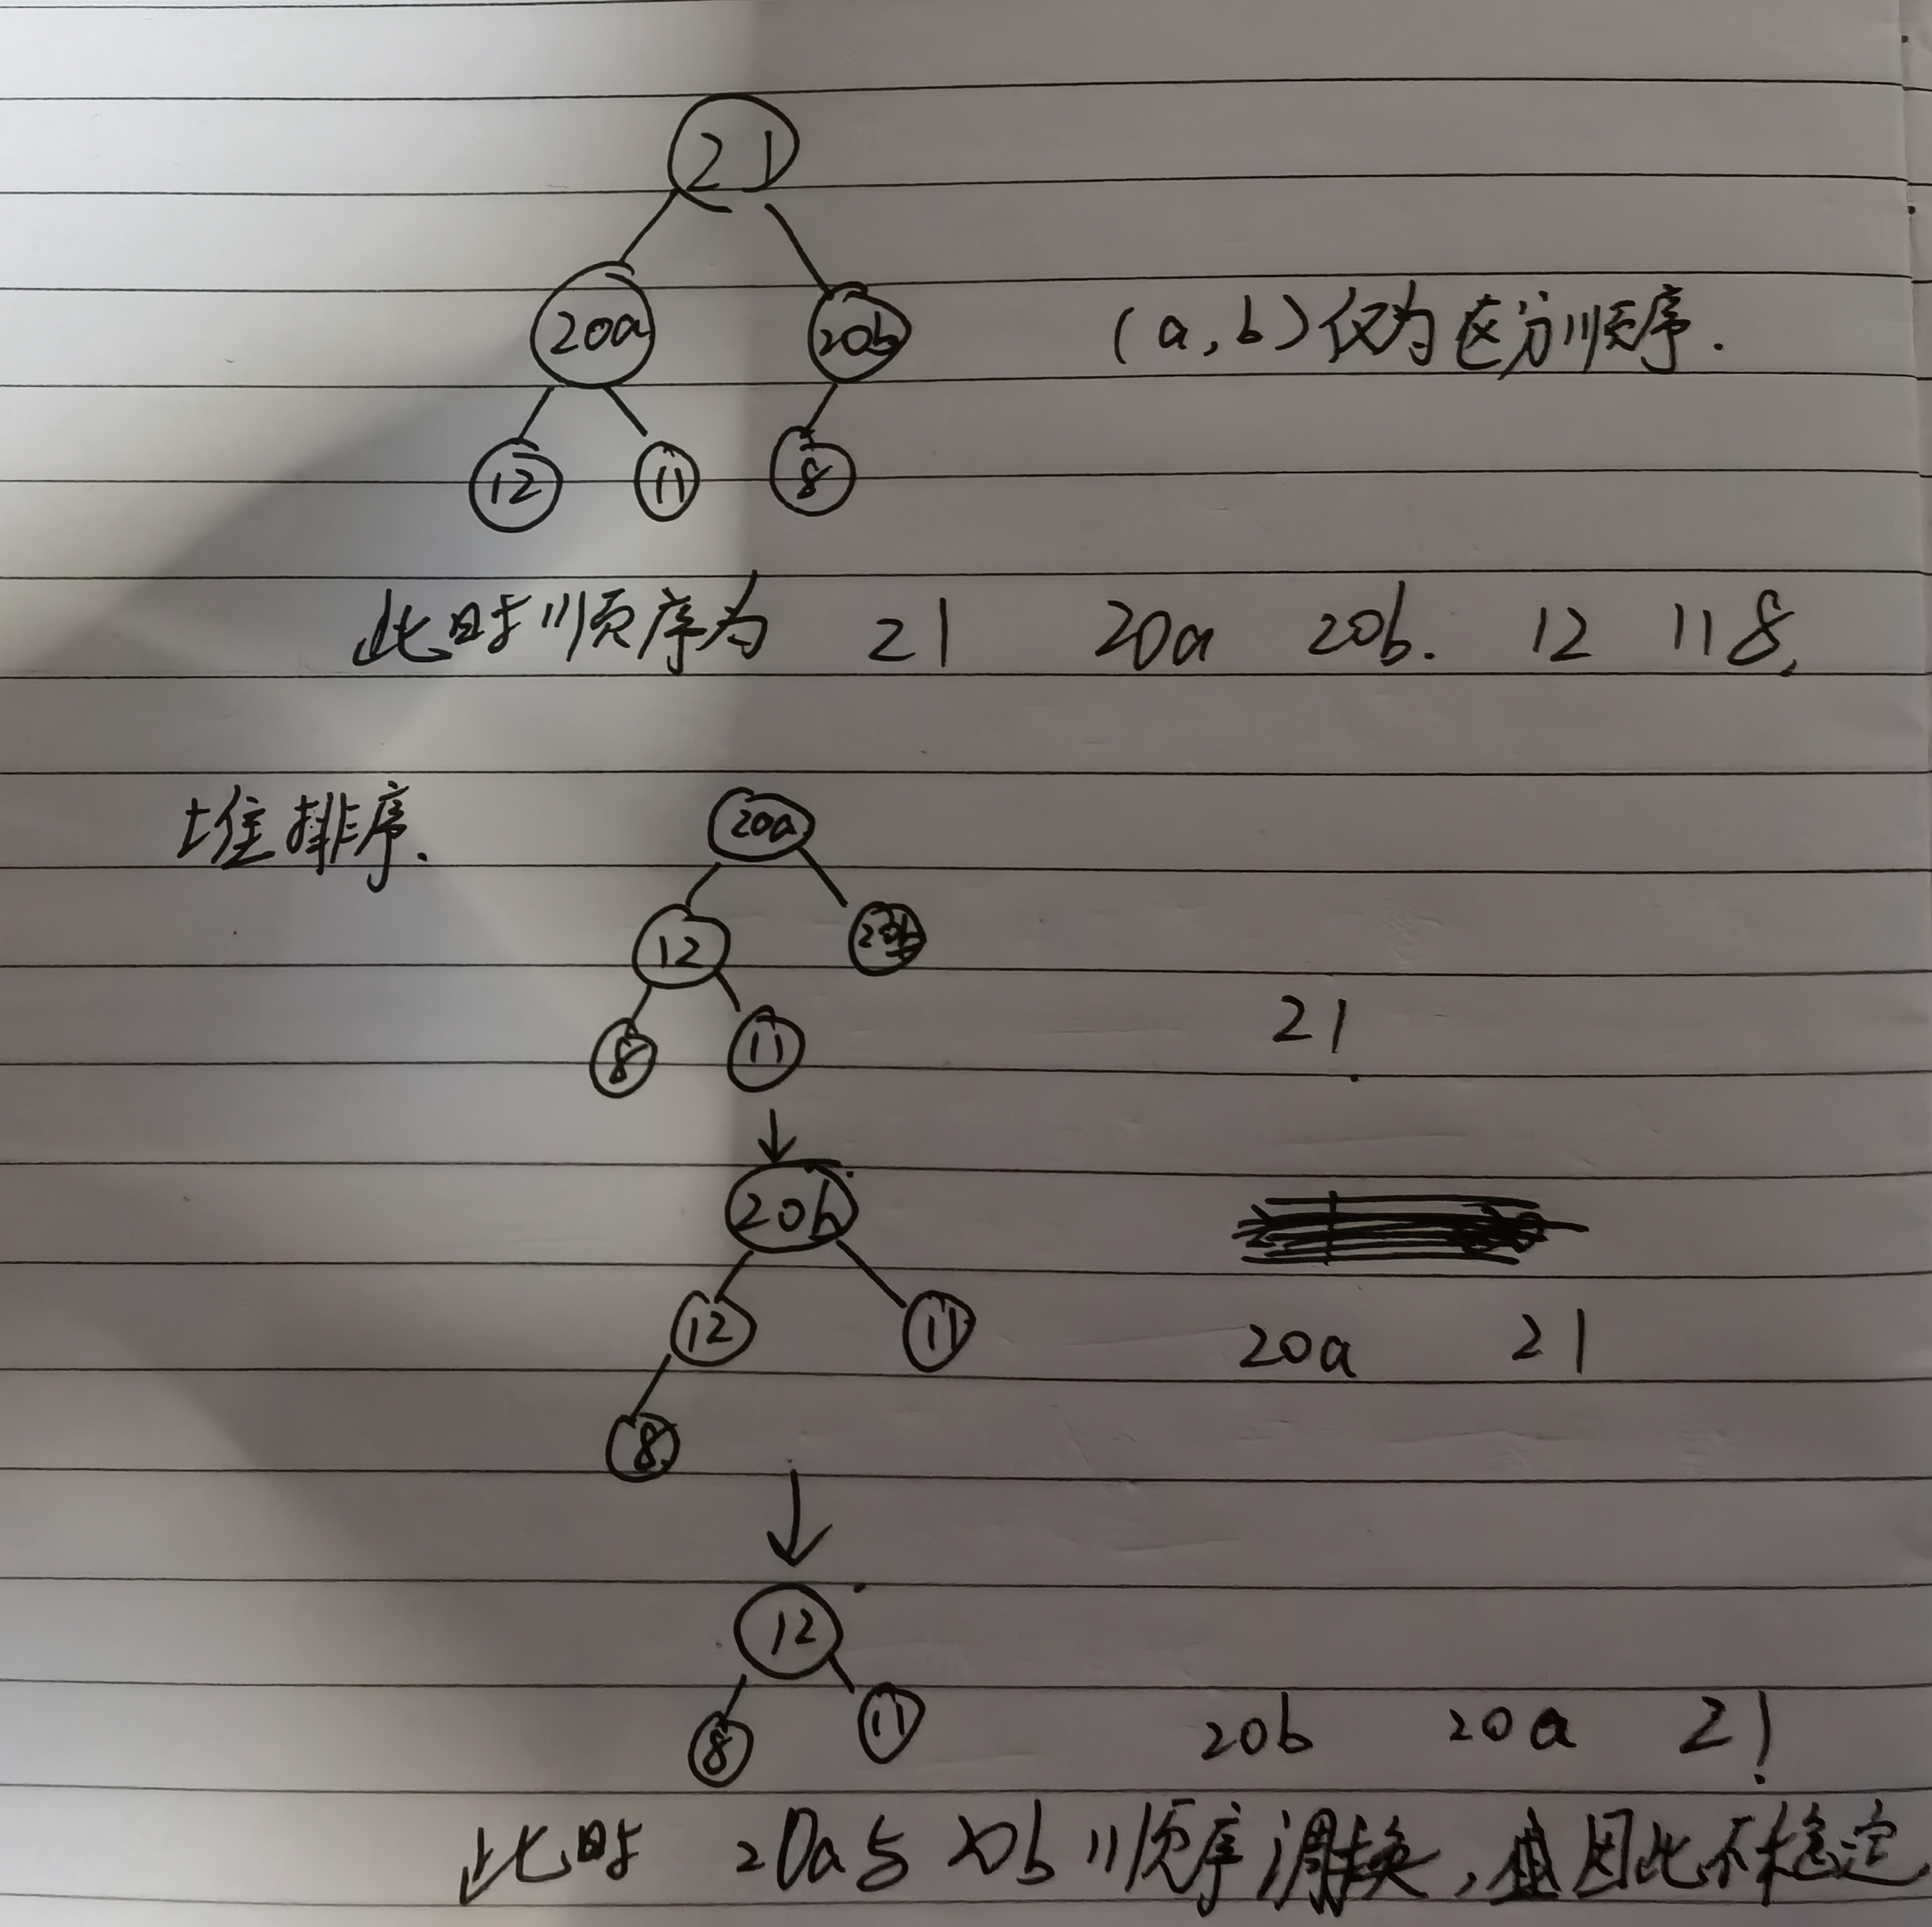 21
20a 20b (a,b)仅为区分顺序.
12 11 8
此时顺序为 21 20a 20b. 12 11 8,
堆排序. 20a
12 20b
21
8 11
20b
12 11 20a 21
8
12
8 11 20b 20a 21
此时 20a与20b顺序调换,因此不稳定